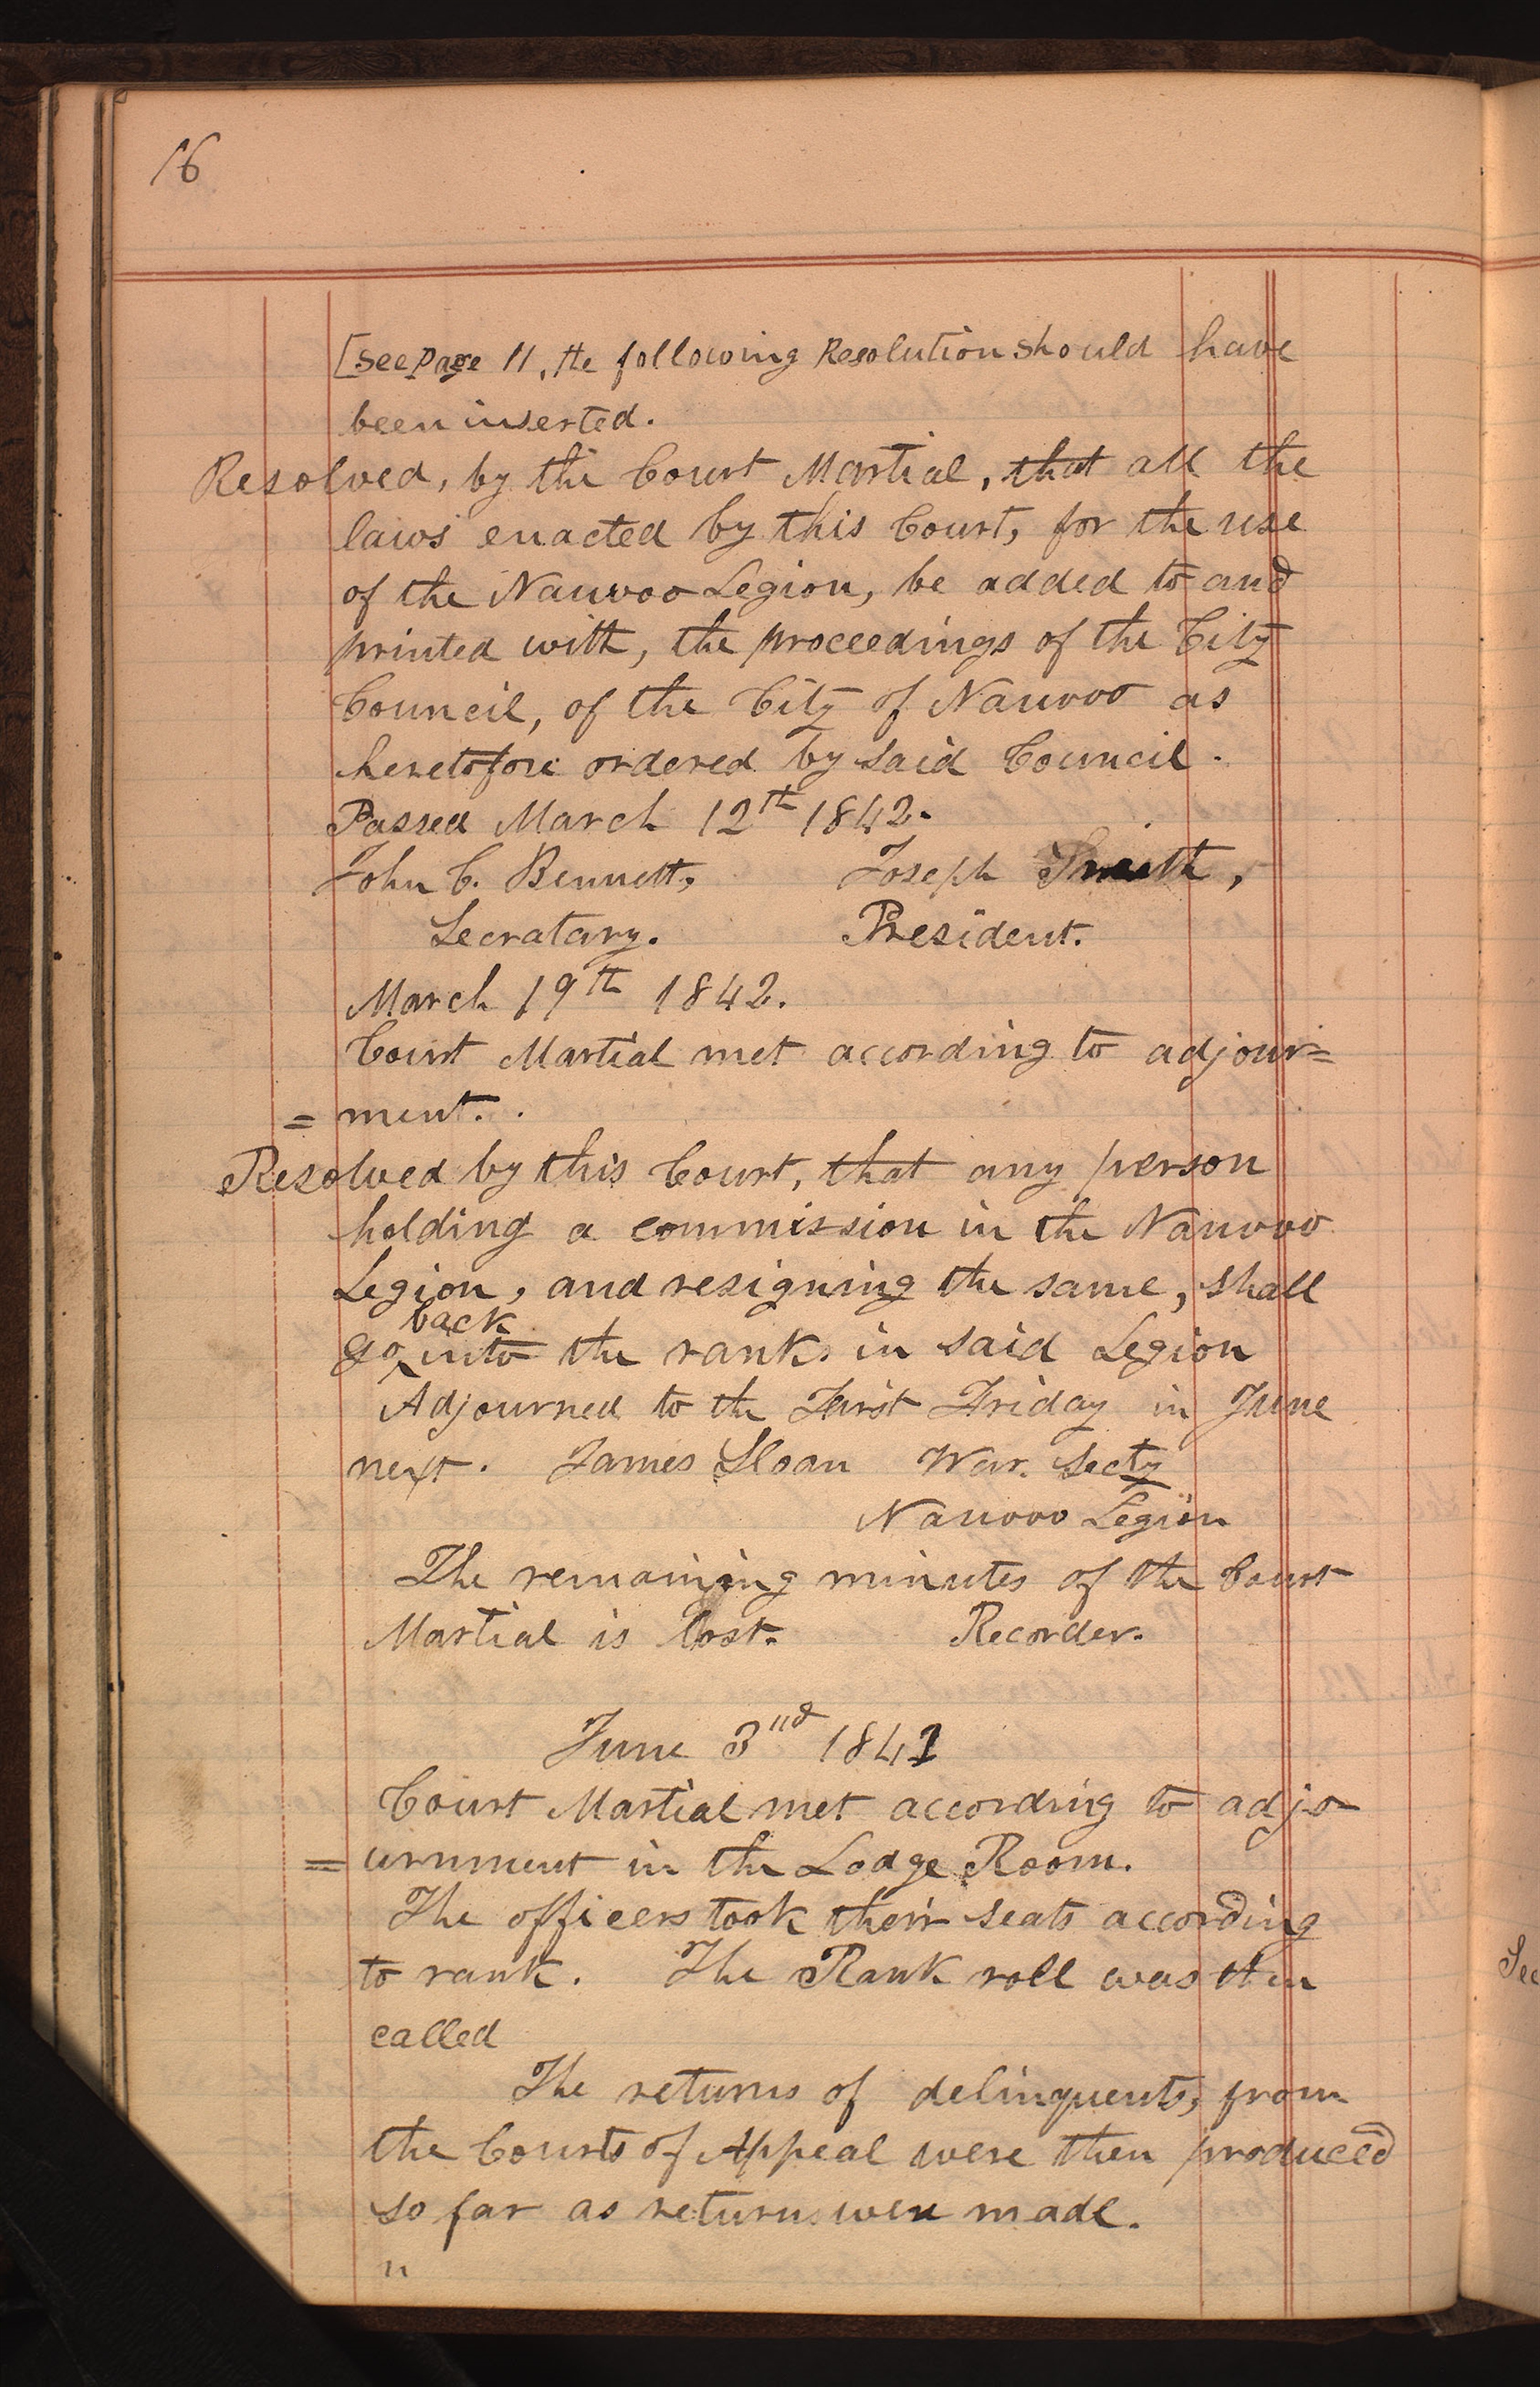 16
[See Page 11, the following Resolution should have
been inserted.
Resolved, by the Court Martial, that all the
laws enacted by this Court, for the use
of the Nauvoo Legion, be added to and
printed with, the proceedings of the City
Council, of the City of Nauvoo as
heretofore ordered by said Council.
Passed March 12th 1842.
John C. Bennett, Joseph Smith,
Secratary. President.
March 19th 1842.
Court Martial met according to adjour=
=ment.
Resolved by this Court, that any person
holding a commission in the Nauvoo
Legion, and resigning the same, shall
back
go ^ into the rank. in said Legion
Adjourned to the First Friday in June
next. James Sloan War. Secty
Nauvoo Legion
The remaining minutes of the Court
Martial is lost. Recorder.
June 3nd 1841
Court Martial met according to adjo
=urnment in the Lodge Room.
The officers took their seats according
to rank. The Rank roll was then
called
The returns of delinquents, from
the Courts of Appeal were then produced
so far as returns were made.
"